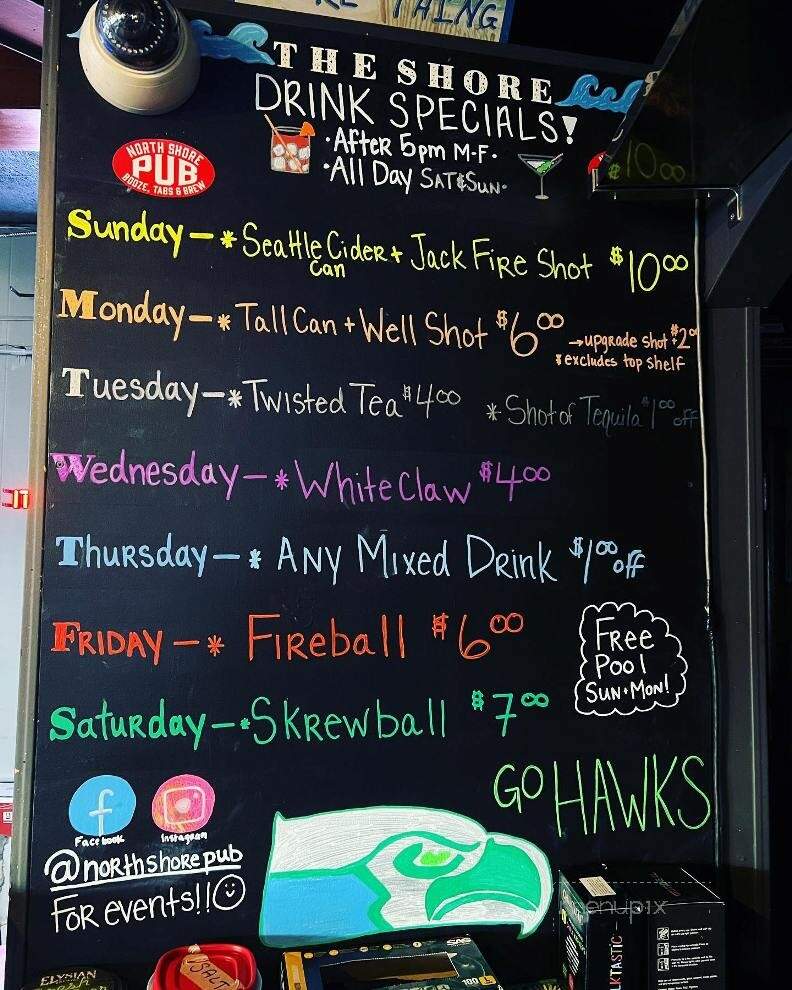 THING
THE SHORE
DRINK SPECIALS!
·After 5pm M-F·
·All Day SAT&SUN·
NORTH SHORE
PUB
BOOZE, TABS & BREW
$10.00
Sunday-*Seattle Cider + Jack Fire Shot $10.00
Can
Monday-*Tall Can + Well Shot $6.00
→upgrade shot $2.00
*excludes top shelf
Tuesday-*Twisted Tea $4.00 *Shot of Tequila $1.00 off
Wednesday-*White Claw $4.00
Thursday-*Any Mixed Drink $1.00 off
FRIDAY-* Fireball $6.00
Saturday-*Skrewball $7.00
Free
Pool
SUN·MON!
GO HAWKS
Facebook
Instagram
@northshorepub
For events!!
menupix
ELYSIAN
SALT
100